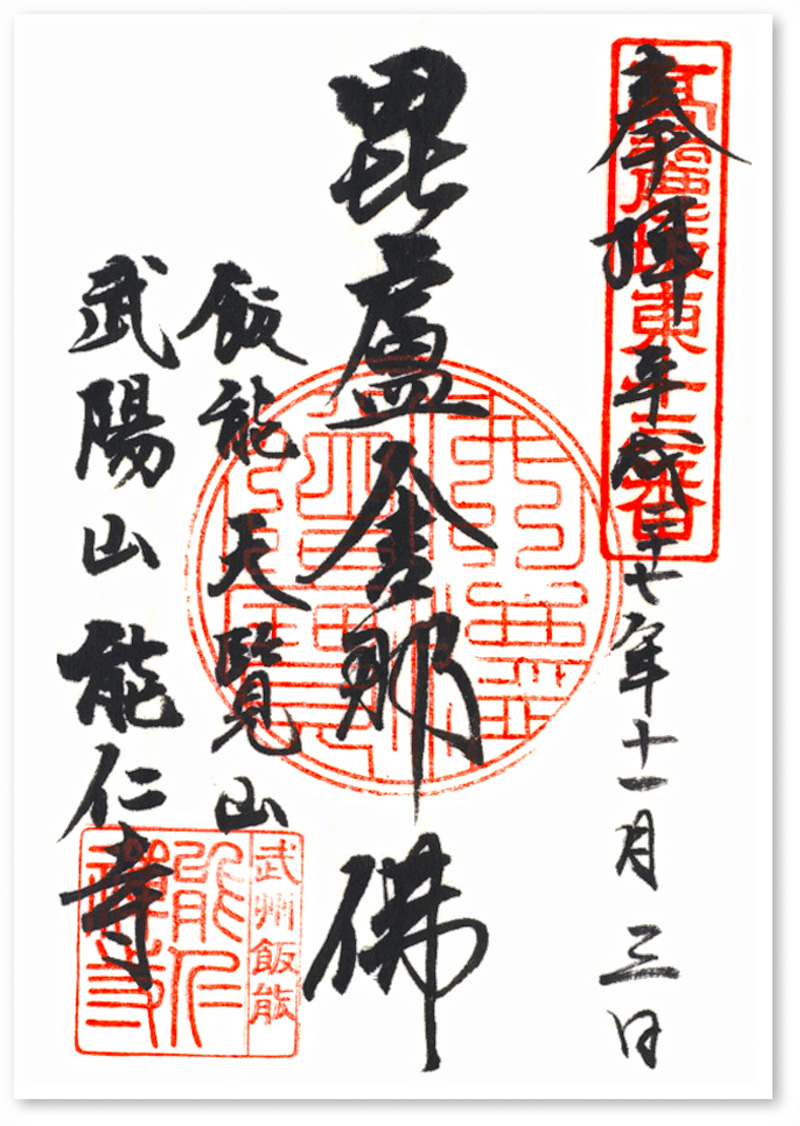 奉拝 平成二十七年十一月三日
毘盧舎那佛
飯能 天覧山
武陽山 能仁寺
武州飯能
能仁
禅寺